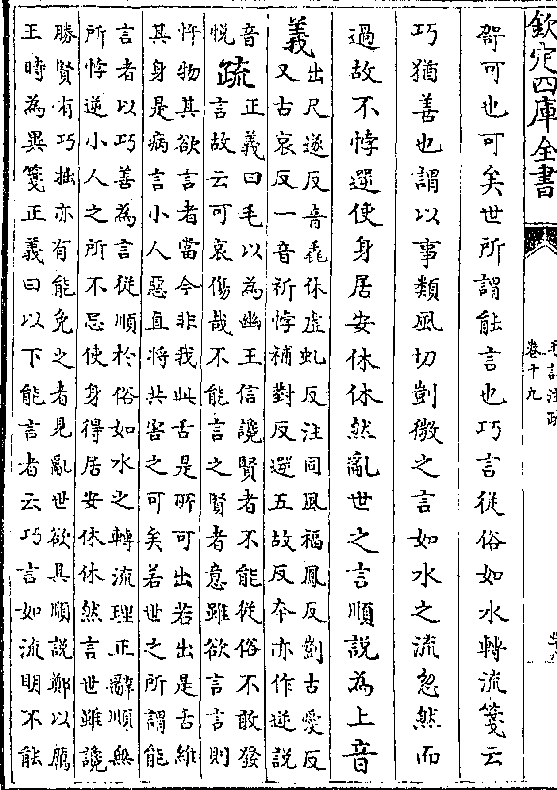 欽定四庫全書
卷十九
哿可也可矣世所謂能言也巧言從俗如水轉流箋云
巧猶善也謂以事類風切剴微之言如水之流忽然而
過故不悖遌使身居安休休然亂世之言順說為上音
義
出尺遂反音毳休虛虬反注同風福鳳反剴古愛反
又古哀反一音祈悖補對反遌五故反本亦作逆說
音
悅
疏
正義曰毛以為幽王信讒賢者不能從俗不敢發
言故云可哀傷哉不能言之賢者意雖欲言言則
忤物其欲言者當今非我此舌是所可出若出是舌維
其身是病言小人惡直將共害之可矣若世之所謂能
言者以巧善為言從順於俗如水之轉流理正辭順無
所悖逆小人之所不忌使身得居安休休然言世雖讒
勝賢有巧拙亦有能免之者見亂世欲其順說鄭以厲
王時為異箋正義曰以下能言者云巧言如流明不能